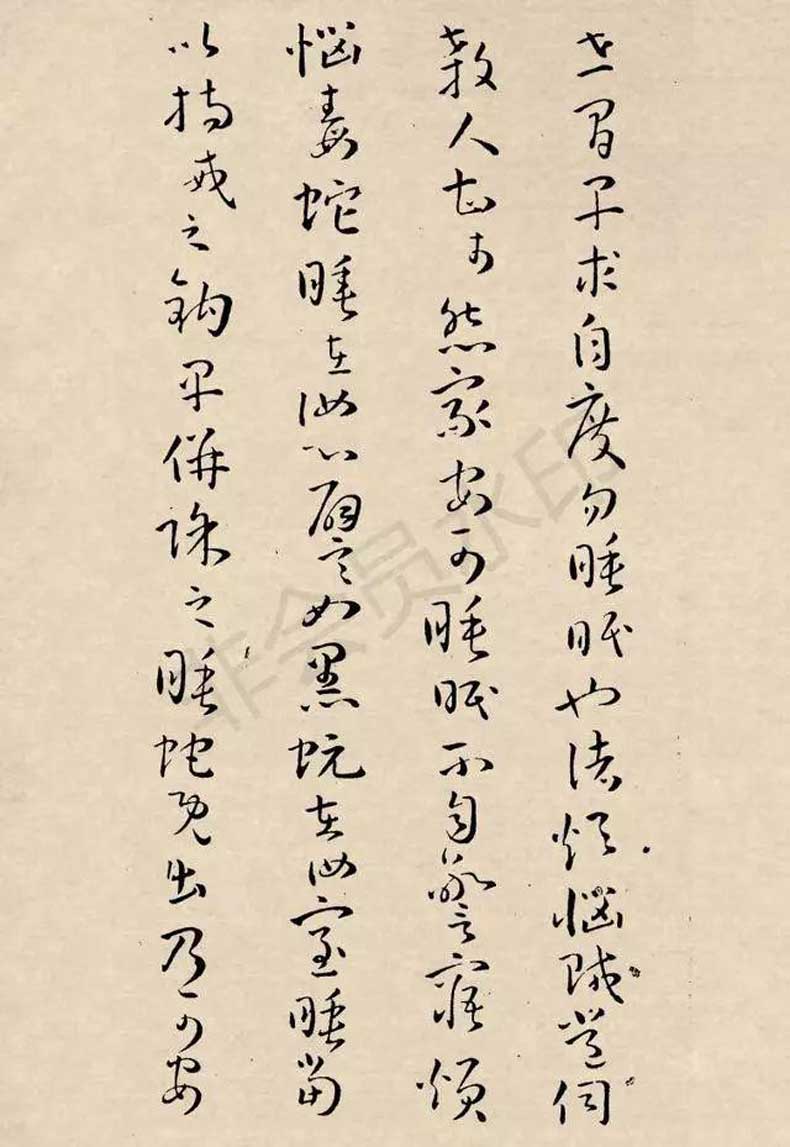 世間早求自度勿睡眠也諸煩惱賊常伺
殺人甚於怨家安可睡眠不自警寤煩
惱毒蛇睡在汝心譬如黑蚖在汝室睡當
以持戒之鉤早併除之睡蛇既出乃可安
非会员水印